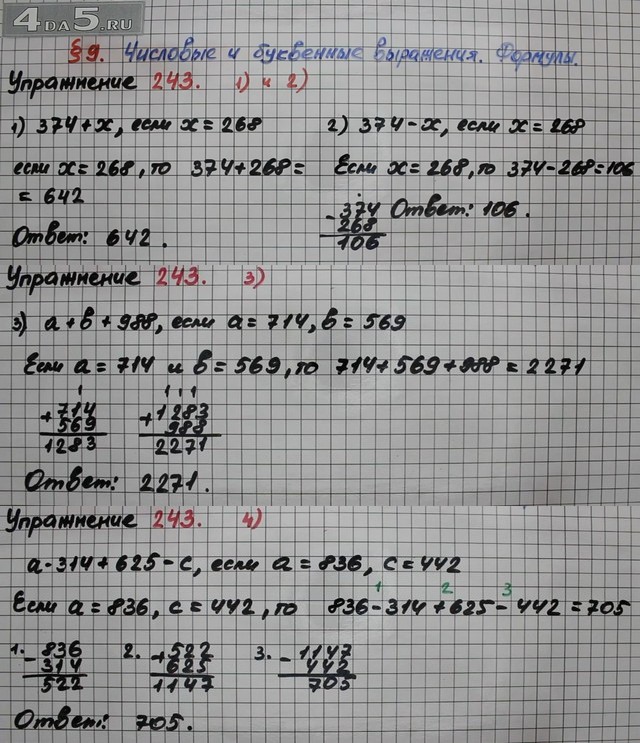 4DA5.RU
§9. Числовые и буквенные выражения. Формулы.
Упражнение 243. 1) и 2)
1) 374+x, если x=268
если x=268, то 374+268=
= 642
Ответ: 642.
2) 374-x, если x=268
Если x=268, то 374-268=106
- 374
268
106
Ответ: 106.
Упражнение 243. 3)
3) a+b+988, если a=714, b=569
Если a=714 и b=569, то 714+569+988=2271
1
+714
569
1283
1 1 1
+1283
988
2271
Ответ: 2271.
Упражнение 243. 4)
a-314+625-c, если a=836, c=442
1 2 3
Если a=836, c=442, то 836-314+625-442=705
1. -836
314
522
2. +522
625
1147
3. -1147
442
705
Ответ: 705.